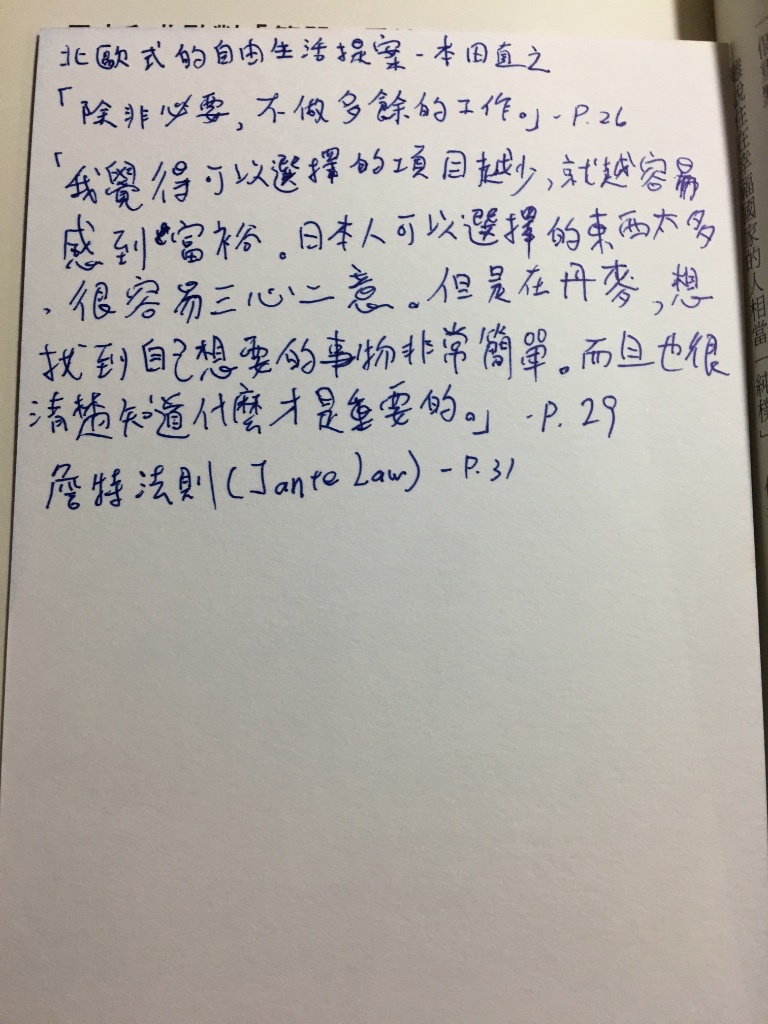 北歐式的自由生活提案-本田直之
「除非必要,不做多餘的工作。」-P.26
「我覺得可以選擇的項目越少,就越容易
感到富裕。日本人可以選擇的東西太多
、很容易三心二意。但是在丹麥,想
找到自己想要的事物非常簡單。而且也很
清楚知道什麼才是重要的。」-P.29
詹特法則(Jante Law)-P.31
國家的人相當「純樸」